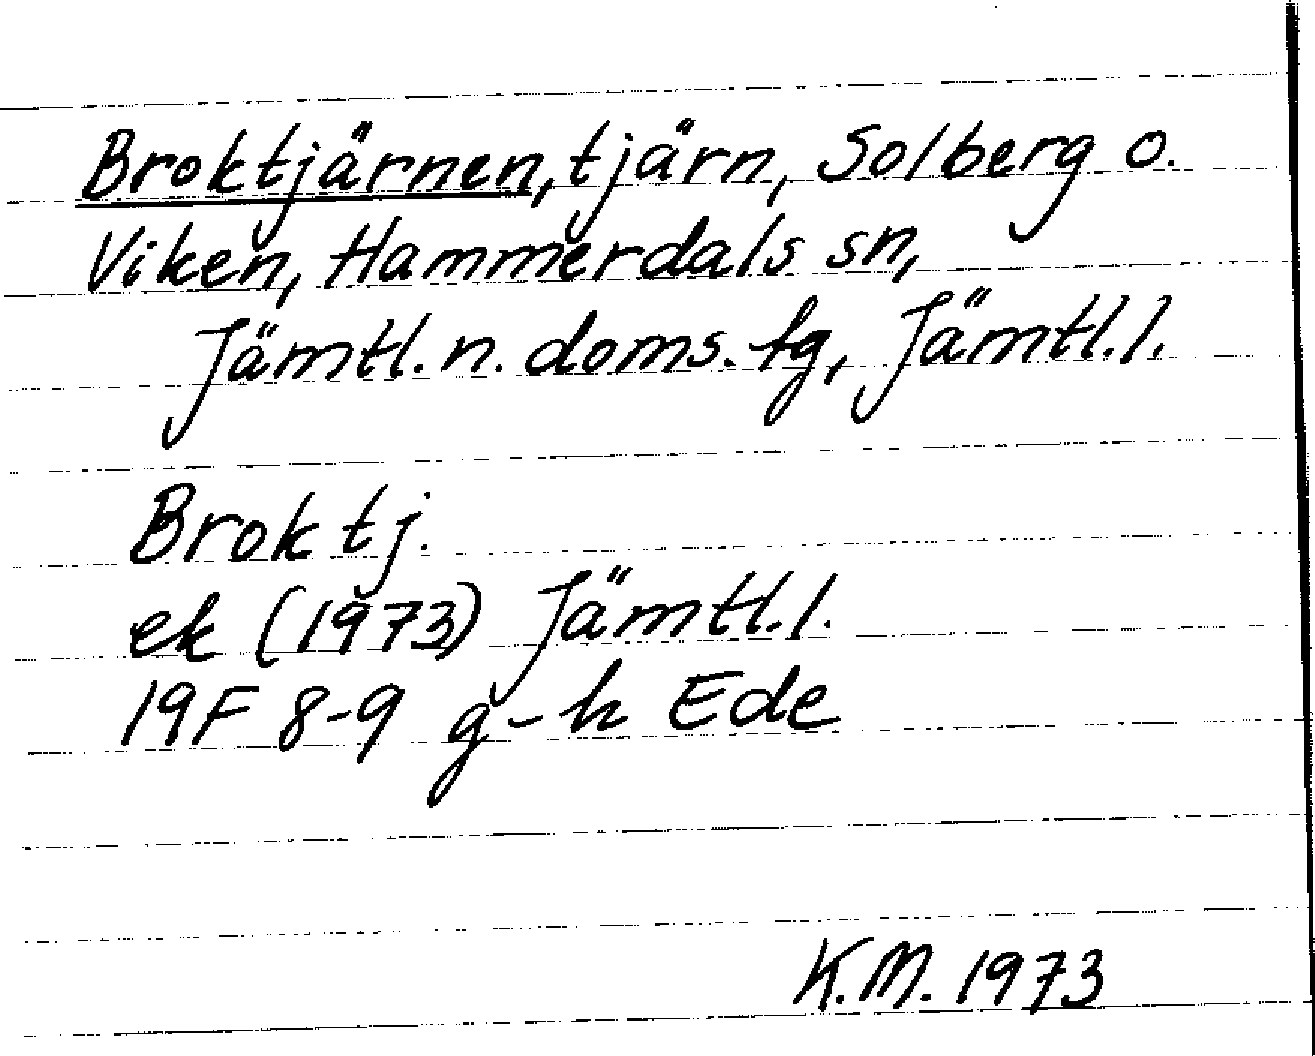 Broktjärnen, tjärn, Solberg o.
Viken, Hammerdals sn,
Jämtl. n. doms. tg, Jämtl. l.
Broktj.
ek (1973) Jämtl. l.
19F 8-9 g-h Ede
K.M. 1973